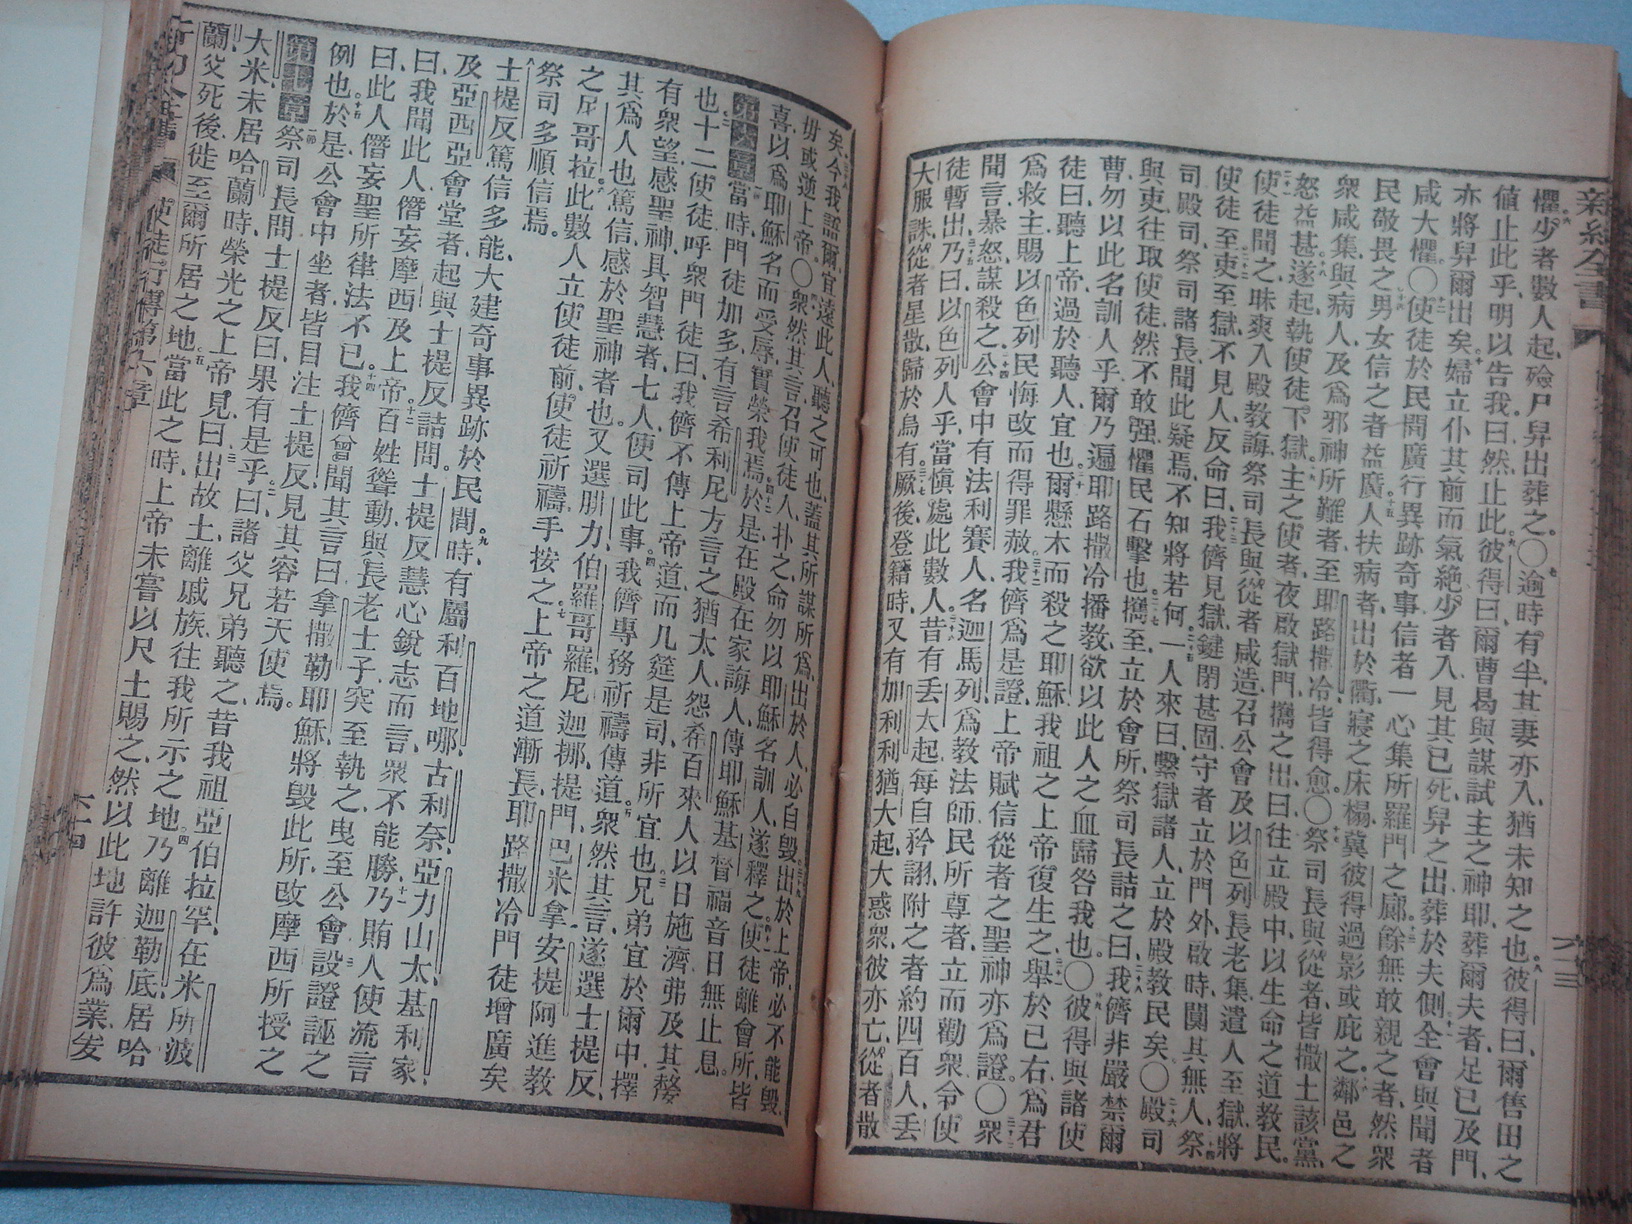 新約全書
六十三
懼少者數人起殮尸舁出葬之〇逾時有半其妻亦入猶未知之也彼得曰爾售田之
値止此乎明以告我曰然止此彼得曰爾曹曷與謀試主之神耶葬爾夫者足已及門
亦將舁爾出矣婦立仆其前而氣絶少者入見其已死舁之出葬於夫側全會與聞者
咸大懼〇使徒於民間廣行異跡奇事信者一心集所羅門之廊餘無敢親之者然衆
民敬畏之男女信之者益廣人扶病者出於衢寢之床榻冀彼得過影或庇之鄰邑之
衆咸集與病人及爲邪神所難者至耶路撒冷皆得愈〇祭司長與從者皆撒土該黨
怒益甚遂起執使徒下獄主之使者夜啟獄門攜之出曰往立殿中以生命之道教民
使徒聞之昧爽入殿教誨祭司長與從者咸造召公會及以色列長老集遣人至獄將
使徒至吏至獄不見人反命曰我儕見獄鍵閉甚固守者立於門外啟時闃其無人祭
司殿司祭司諸長聞此疑焉不知將若何一人來曰繫獄諸人立於殿教民矣〇殿司
與吏往取使徒然不敢强懼民石擊也攜至立於會所祭司長詰之曰我儕非嚴禁爾
曹勿以此名訓人乎爾乃遍耶路撒冷播教欲以此人之血歸咎我也〇彼得與諸使
徒曰聽上帝過於聽人宜也爾懸木而殺之耶穌我祖之上帝復生之舉於已右爲君
爲救主賜以色列民悔改而得罪赦我儕爲是證上帝賦信從者之聖神亦爲證〇衆
聞言暴怒謀殺之公會中有法利賽人名迦馬列爲教法師民所尊者立而勸衆令使
徒暫出乃曰以色列人乎當愼處此數人昔有丢大起每自矜詡附之者約四百人丢
大服誅從者星散歸於烏有厥後登籍時又有加利利猶大起大惑衆彼亦亡從者散
矣今我語爾宜遠此人聽之可也蓋其所謀所爲出於人必自毀出於上帝必不能毀
毋或逆上帝〇衆然其言召使徒入扑之命勿以耶穌名訓人遂釋之使徒離會所皆
喜以爲耶穌名而受辱實榮我焉於是在殿在家誨人傳耶穌基督福音日無止息
第六章當時門徒加多有言希利尼方言之猶太人怨希百來人以日施濟弗及其嫠
也十二使徒呼衆門徒曰我儕不傳上帝道而几筵是司非所宜也兄弟宜於爾中擇
有衆望感聖神具智慧者七人使司此事我儕專務祈禱傳道衆然其言遂選士提反
其爲人也篤信感於聖神者也又選腓力伯羅哥羅尼迦挪提門巴米拿安提阿進教
之尼哥拉此數人立使徒前使徒祈禱手按之上帝之道漸長耶路撒冷門徒增廣矣
祭司多順信焉
士提反篤信多能大建奇事異跡於民間時有屬利百地哪古利奈亞力山太基利家
及亞西亞會堂者起與士提反詰問士提反慧心銳志而言衆不能勝乃賄人使流言
曰我聞此人僭妄摩西及上帝百姓聳動與長老士子突至執之曳至公會設證誣之
曰此人僭妄聖所律法不已我儕曾聞其言曰拿撒勒耶穌將毀此所改摩西所授之
例也於是公會中坐者皆目注士提反見其容若天使焉
第七章祭司長問士提反曰果有是乎曰諸父兄弟聽之昔我祖亞伯拉罕在米所波
大米未居哈蘭時榮光之上帝見曰出故土離戚族往我所示之地乃離迦勒底居哈
蘭父死後徙至爾所居之地當此之時上帝未嘗以尺土賜之然以此地許彼爲業爰
使徒行傳第六章
六十四